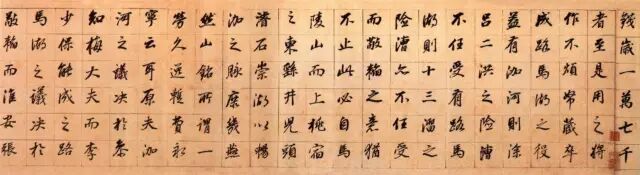 錢歲一萬七千
者至是用之將
作不煩幣歲卒
成路馬湖之役
益有泇河則涂
呂二洪之險漕
不任受有路馬
湖則十三溜之
險漕之不任受
而敬輪之意猶
不止此必自馬
陵山而上桃宿
之東繇井兒頭
潛石崇湖以暢
泇之脈糜幾燕
然山銘所謂一
勞久逸賴費永
寧云耳原夫泇
河之議決於泰
知梅大夫而李
少保能成之路
馬湖之議決於
敬輪而淮安張